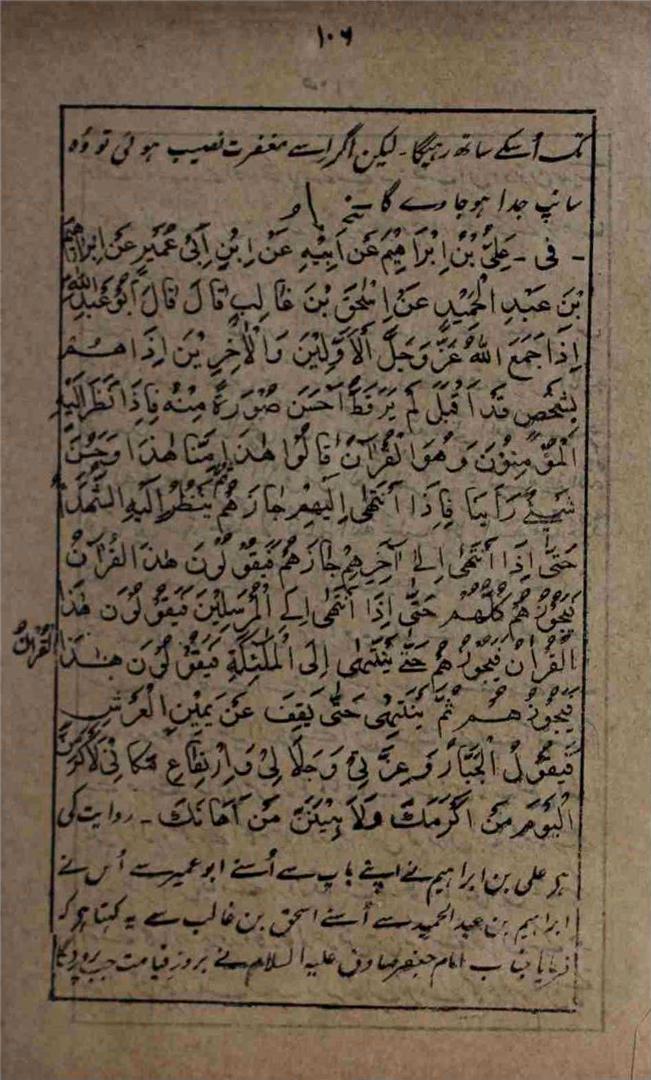 ۱۰۶
تک اُسکے ساتھ رہیگا۔ لیکن اگر اسے مغفرت نصیب ہوئی تو وُہ
سانپ جدا ہوجاوے گا
۔ فی ۔ عَلِیُّ بْنُ اِبْرَاهِیْمَ عَنْ اَبِیْهِ عَنْ اِبْنِ اَبِیْ عُمَیْرٍ عَنْ اِبْرَاهِیْمَ
بْنَ عَبْدِ الْحَمِیْدِ عَنْ اِسْحٰقَ بْنَ غَالِبٍ قَالَ قَالَ اَبُوْ عَبْدِ اللّٰهِ
اِذَا جَمَعَ اللّٰهُ عَزَّ وَجَلَّ الْاَوَّلِیْنَ وَالْاٰخِرِیْنَ اِذَا هُمْ
بِشَخْصٍ قَدْ اَقْبَلَ لَمْ یُرَ قَطُّ اَحْسَنَ صُوْرَةً مِنْهُ فَاِذَا نَظَرَ اِلَیْهِ
الْمُؤْمِنُوْنَ وَهُوَ الْقُرْاٰنُ قَالُوْا هٰذَا مِنَّا هٰذَا اَحْسَنُ
شَیْءٍ رَاَیْنَا فَاِذَا اَنْتَهٰی اِلَیْهِمْ جَازَهُمْ ثُمَّ یَنْظُرُ اِلَیْهِ الشُّهَدَآءُ
حَتّٰی اِذَا اَنْتَهٰی اِلٰی آخِرِهِمْ جَازَهُمْ فَیَقُوْلُوْنَ هٰذَا الْقُرْاٰنُ
فَیَجُوْزُهُمْ كُلَّهُمْ حَتّٰی اِذَا اَنْتَهٰی اِلَی الْمُرْسَلِیْنَ فَیَقُوْلُوْنَ هٰذَا
الْقُرْاٰنُ فَیَجُوْزُهُمْ حَتّٰی یَنْتَهٰی اِلَی الْمَلٰئِكَةِ فَیَقُوْلُوْنَ هٰذَا الْقُرْاٰنُ
فَیَجُوْزُهُمْ ثُمَّ یَنْتَهِیْ حَتّٰی یَقِفَ عَنْ یَمِیْنِ الْعَرْشِ
فَیَقُوْلُ الْجَبَّارُ وَعِزَّتِیْ وَجَلَالِیْ وَاِرْتِفَاعِ مَكَانِیْ لَاُكْرِمَنَّ
الْیَوْمَ مَنْ اَكْرَمَكَ وَلَاُهِیْنَنَّ مَنْ اَهَانَكَ ۔ روایت کی
ہے علی بن ابراہیم نے اپنے باپ سے اُسنے ابو عمیر سے اُس نے
ابراہیم بن عبدالحمید سے اُسنے اسحٰق بن غالب سے یہ کہتا ہے کہ
فرمایا جناب امام جعفر صادق علیہ السلام نے بروز قیامت جب